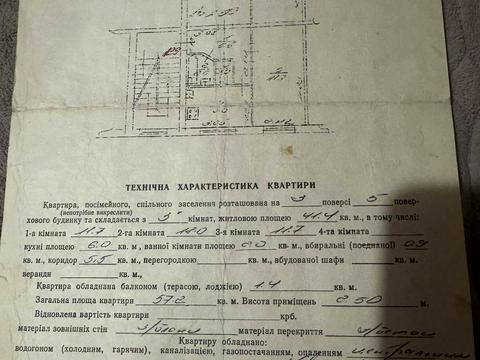 3.02
3.00
ТЕХНІЧНА ХАРАКТЕРИСТИКА КВАРТИРИ
Квартира, посімейного, спільного заселення розташована на 3 поверсі 5 повер-
(непотрібне викреслити)
хового будинку та складається з 3х кімнат, житловою площею 41.4 кв. м., в тому числі:
1-а кімната 11.7 2-га кімната 18.0 3-я кімната 11.7 4-та кімната
кухні площею 6.0 кв. м., ванної кімнати площею кв. м., вбиральні (поєднаної) 0.9
кв. м., коридор 5.5 кв. м., перегородкою кв. м., вбудованої шафи кв. м.,
веранди кв. м.,
Квартира обладнана балконом (терасою, лоджією) 1.4 кв. м.
Загальна площа квартири кв. м. Висота приміщень 2.50 м.
Відновлена вартість квартири крб.
матеріал зовнішніх стін матеріал перекриття
Квартиру обладнано:
водогоном (холодним, гарячим), каналізацією, газопостачанням, опаленням